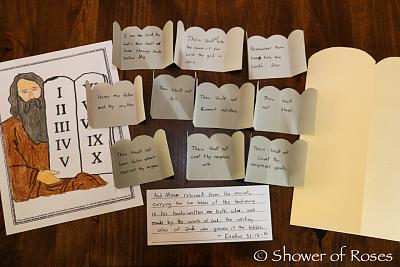 I am the Lord thy
God; thou shalt not
have strange Gods
before Me
Thou shalt not take
the name of the
Lord thy God in
vain
Remember thou
keep holy the
Lord's day
Honor thy father
and thy mother
Thou Shalt not
kill
Thou Shalt not
Commit adultery
Thou Shalt
not steal
Thou Shalt not
bear false witness
against thy neighbor
Thou Shalt not
Covet thy neighbor's
wife
Thou Shalt not
Covet thy
neighbor's goods
I
II
III
IV
V
IX
X
And Moses returned from the mount,
carrying the two tables of the testimony
in his hand, written on both sides, and
made by the work of God: the writing
also of God was graven in the tables.
~ Exodus 32:15-16
© Shower of Roses